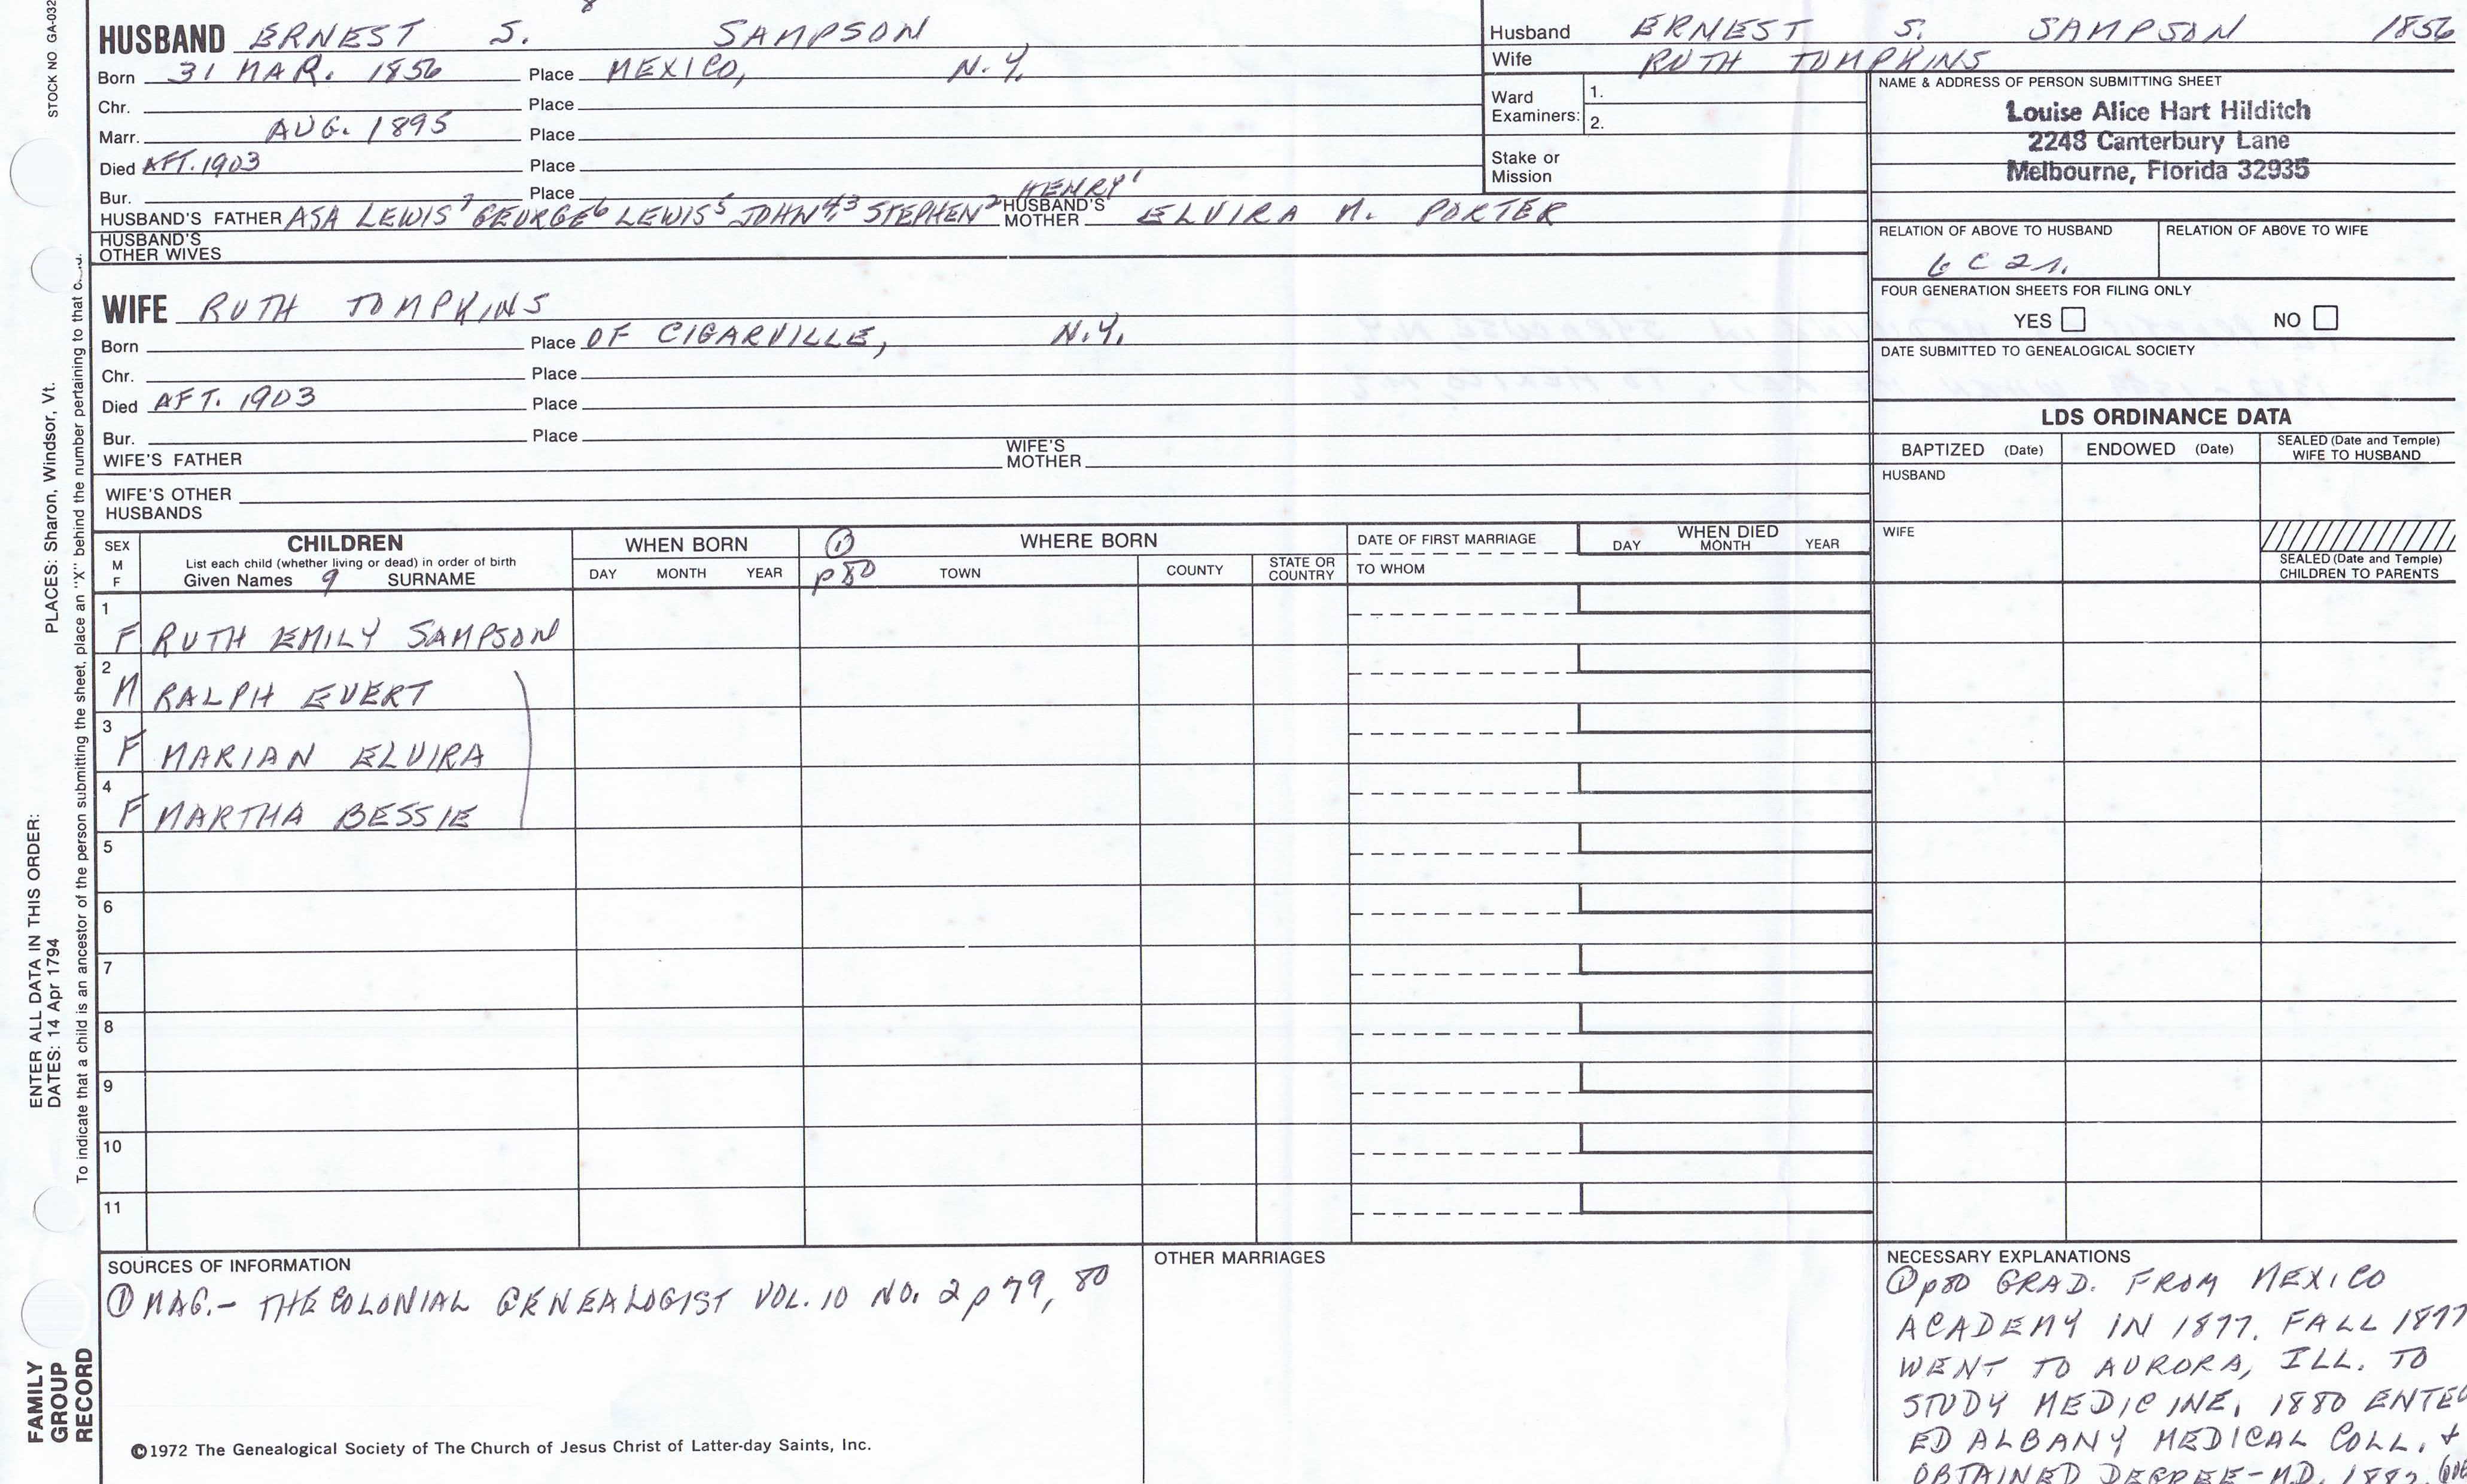 HUSBAND ERNEST S. SAMPSON
Born 31 MAR. 1856 Place MEXICO, N.Y.
Chr. Place
Marr. AUG. 1895 Place
Died AFT. 1903 Place
Bur. Place
HENRY1
HUSBAND'S FATHER ASA LEWIS7 GEORGE6 LEWIS5 JOHN4,3 STEPHEN2 HUSBAND'S MOTHER ELVIRA M. PORTER
HUSBAND'S OTHER WIVES
WIFE RUTH TOMPKINS
Born Place OF CIGARVILLE, N.Y.
Chr. Place
Died AFT. 1903 Place
Bur. Place
WIFE'S FATHER WIFE'S MOTHER
WIFE'S OTHER HUSBANDS
Husband ERNEST S. SAMPSON 1856
Wife RUTH TOMPKINS
Ward Examiners: 1.
2.
Stake or Mission
NAME & ADDRESS OF PERSON SUBMITTING SHEET
Louise Alice Hart Hilditch
2248 Canterbury Lane
Melbourne, Florida 32935
RELATION OF ABOVE TO HUSBAND RELATION OF ABOVE TO WIFE
6 C 2 r.
FOUR GENERATION SHEETS FOR FILING ONLY
YES NO
DATE SUBMITTED TO GENEALOGICAL SOCIETY
LDS ORDINANCE DATA
BAPTIZED (Date) ENDOWED (Date) SEALED (Date and Temple) WIFE TO HUSBAND
HUSBAND
WIFE
SEALED (Date and Temple) CHILDREN TO PARENTS
SEX M F
CHILDREN
List each child (whether living or dead) in order of birth
Given Names 9 SURNAME
WHEN BORN
DAY MONTH YEAR
① p80
WHERE BORN
TOWN COUNTY STATE OR COUNTRY
DATE OF FIRST MARRIAGE
TO WHOM
WHEN DIED
DAY MONTH YEAR
1 F RUTH EMILY SAMPSON
2 M RALPH EVERT
3 F MARIAN ELVIRA
4 F MARTHA BESSIE
5
6
7
8
9
10
11
SOURCES OF INFORMATION
① MAG.- THE COLONIAL GENEALOGIST VOL. 10 NO. 2 p 79, 80
OTHER MARRIAGES
NECESSARY EXPLANATIONS
① p80 GRAD. FROM MEXICO
ACADEMY IN 1877. FALL 1877
WENT TO AURORA, ILL. TO
STUDY MEDICINE. 1880 ENTER
ED ALBANY MEDICAL COLL. +
OBTAINED DEGREE-M.D. 1882.
©1972 The Genealogical Society of The Church of Jesus Christ of Latter-day Saints, Inc.
STOCK NO GA-032
PLACES: Sharon, Windsor, Vt.
ENTER ALL DATA IN THIS ORDER:
DATES: 14 Apr 1794
To indicate that a child is an ancestor of the person submitting the sheet, place an "X" behind the number pertaining to that
FAMILY GROUP RECORD